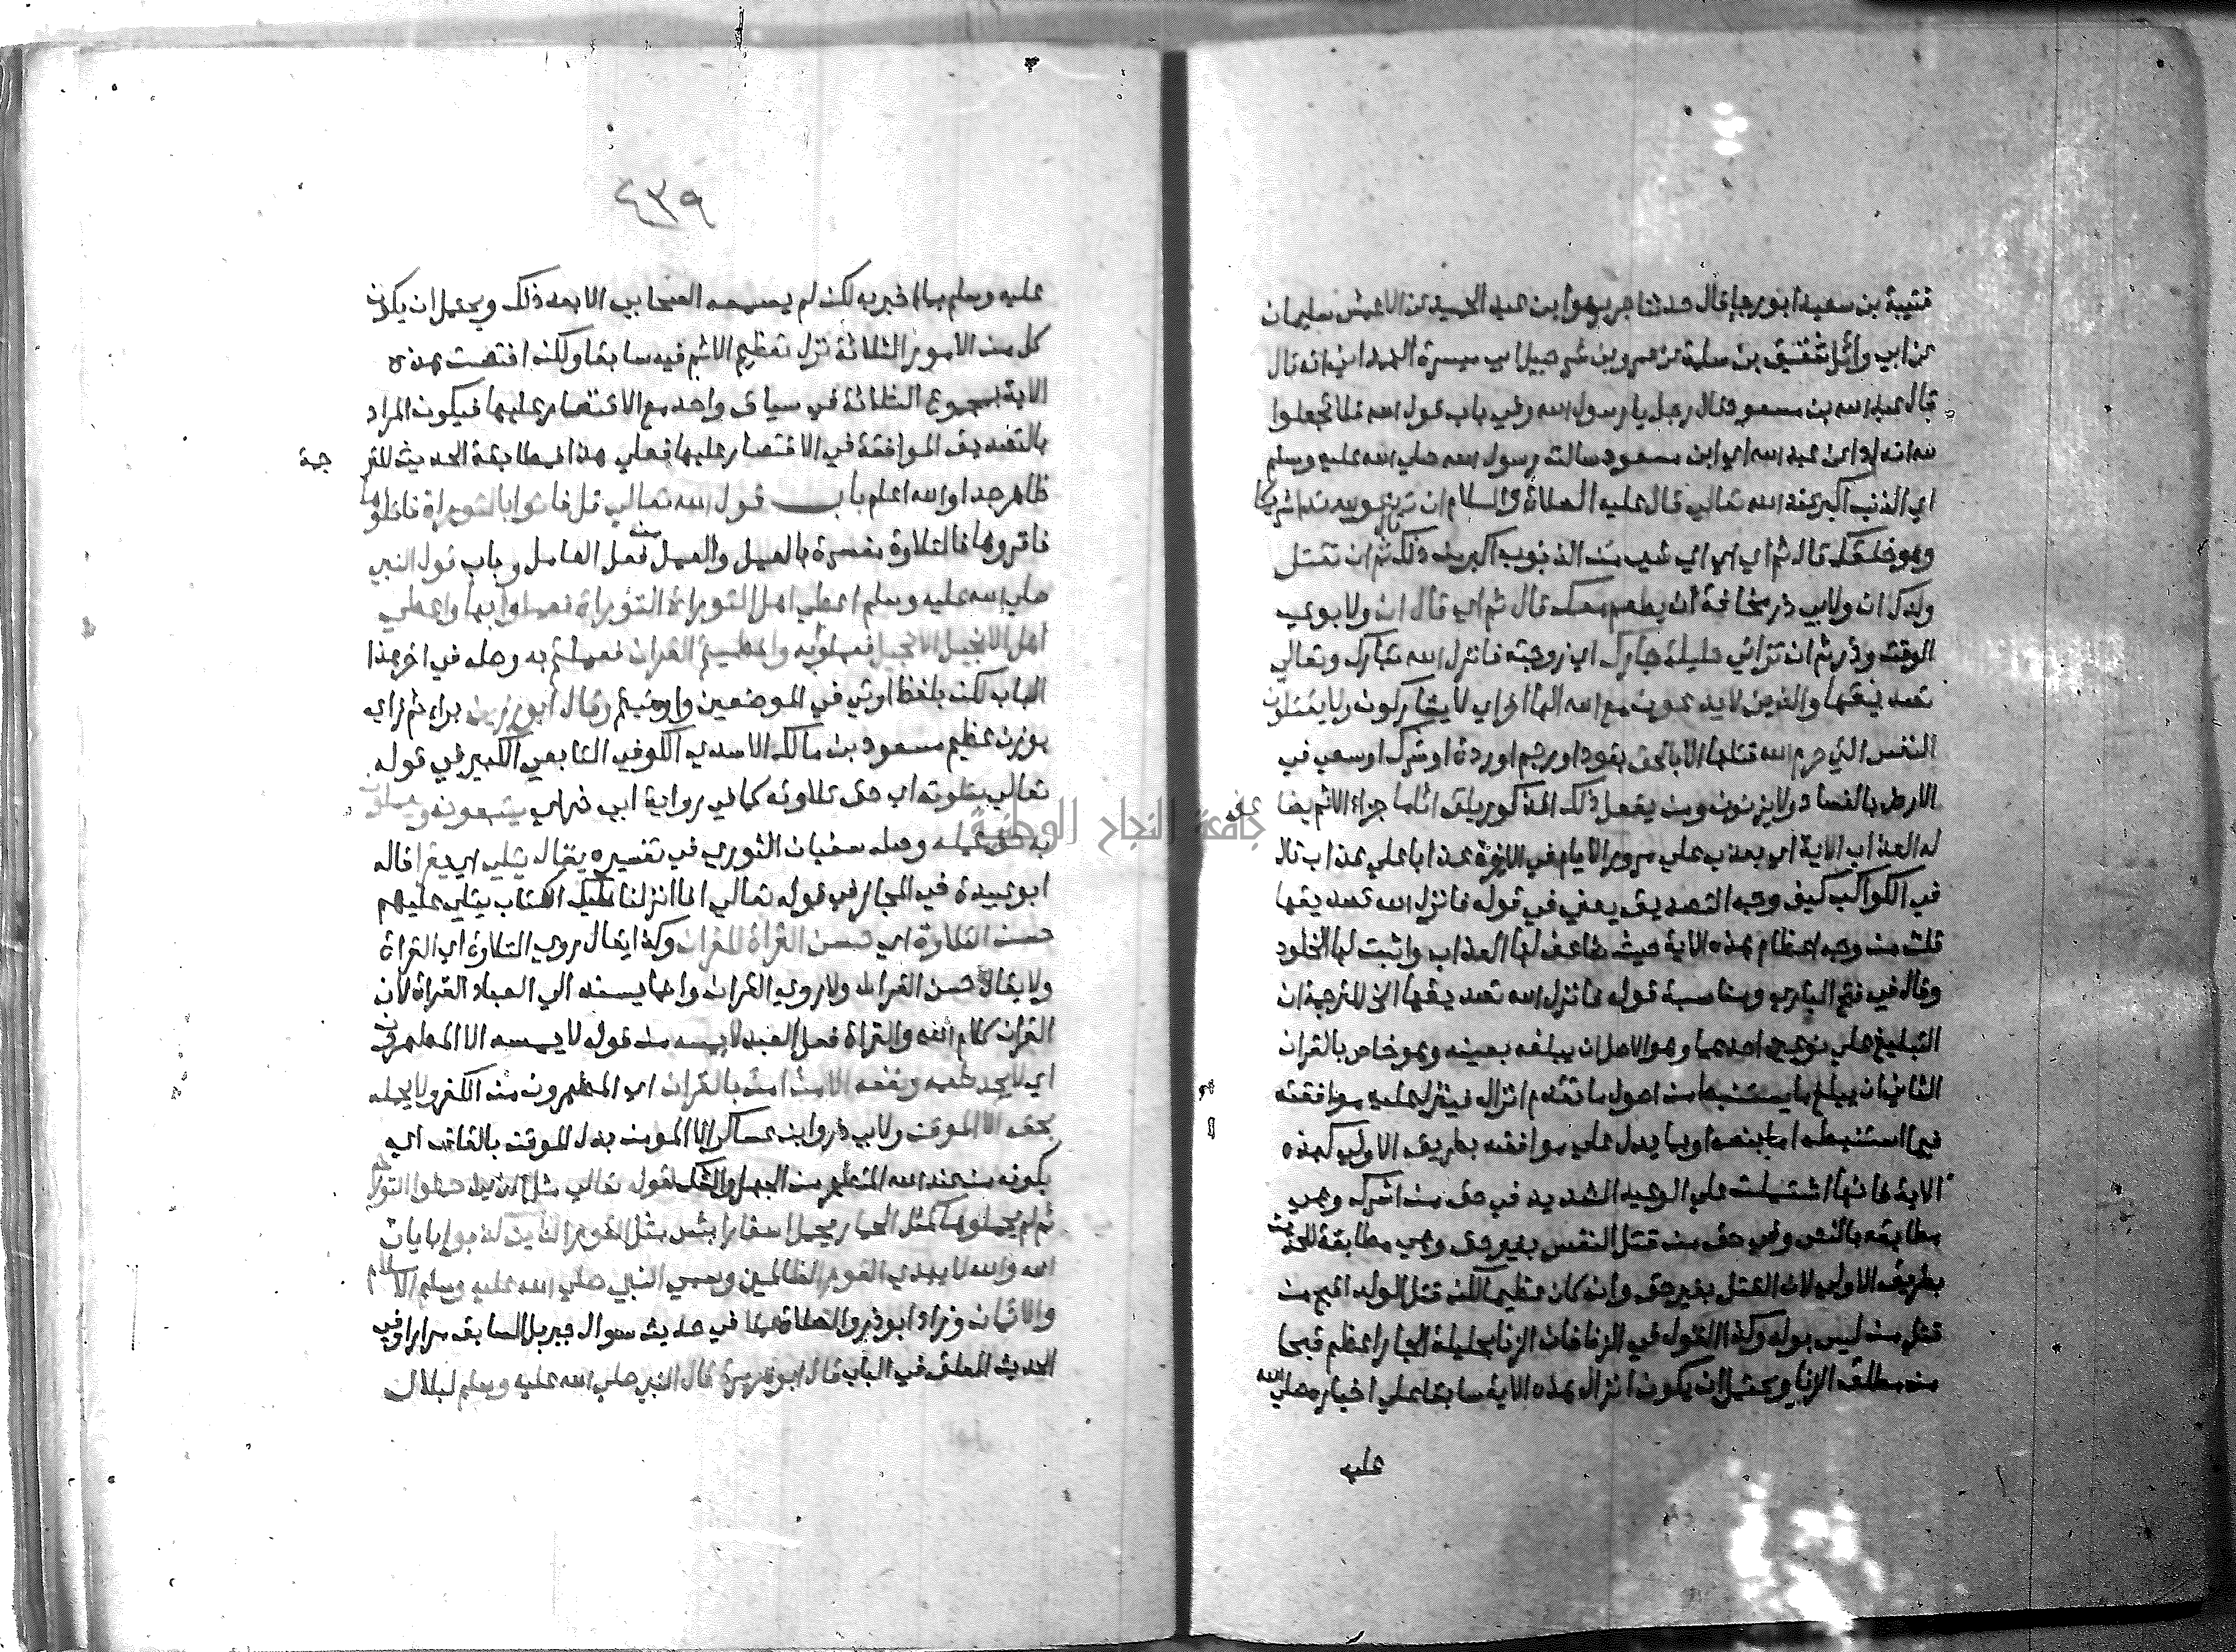 قتيبة بن سعيد ابو رجا قال حدثنا جرير هو ابن عبد الحميد عن الاعمش سليمان
عن ابي وائل شقيق بن سلمة عن عمرو بن شرحبيل ابي ميسرة الهمداني انه قال
قال عبد الله بن مسعود قال رجل يا رسول الله وفي باب قول الله فلا تجعلوا
لله اندادا عن عبد الله اي ابن مسعود سالت رسول الله صلي الله عليه وسلم
اي الذنب اكبر عند الله تعالي قال عليه الصلاة والسلام ان تدعو لله ندا شريكا
وهو خلقك قال ثم اي اي اي شي من الذنوب اكبر من ذلك ثم ان تقتل
ولدك ان ولابي ذر مخافة ان يطعم معك قال ثم اي قال ان ولابوي
الوقت وذر ثم ان تزاني حليلة جارك اي زوجته فانزل الله تبارك وتعالي
تصديقها والذين لا يدعون مع الله الها اخر اي لا يشاركون ولا يقتلون
النفس التي حرم الله قتلها الا بالحق بقود او رجم او ردة او شرك او سعي في
الارض بالفساد ولا يزنون ومن يفعل ذلك المذكور يلق اثاما جزاء الاثم يضا
عف
له العذاب الاية اي يعذب علي مرور الايام في الاخرة عذابا علي عذاب قال
في الكواكب كيف وجه التصديق يعني في قوله فانزل الله تصديقها
قلت من وجه اعظام هذه الاية حيث ضاعف لها العذاب واثبت لها الخلود
وقال في فتح الباري ومناسبة قوله فانزل الله تصديقها الخ للترجمة ان
التبليغ علي نوعين احدهما وهو الاصل ان يبلغه بعينه وهو خاص بالقران
الثاني ان يبلغ ما يستنبط من اصول ما تقدم انزاله فينزل عليه موافقته
فيما استنبطه اما بنصه او بما يدل علي موافقته بطريق الاولي كهذه
الاية فانها اشتملت علي الوعيد الشديد في حق من اشرك وهي
مطابقة بالنص وفي حق من قتل النفس بغير حق وهي مطابقة للحديث
بطريق الاولي لان القتل بغير حق وان كان عظيما لكن قتل الولد اقبح من
قتل من ليس بولد وكذا القول في الزناة فان الزنا بحليلة الجار اعظم قبحا
من مطلق الزنا ويحتمل ان يكون انزال هذه الاية سابقا علي اخباره صلي الله
عليه
٤٣٩
عليه وسلم بما اخبر به لكن لم يسمعه الصحابي الا بعد ذلك ويحتمل ان يكون
كل من الامور الثلاثة نزل تعظيم الاثم فيه سابقا ولكن اختصت هذه
الاية بمجموع الثلاثة في سياق واحد مع الاقتصار عليها فيكون المراد
بالتصديق الموافقة في الاقتصار عليها فعلي هذا فمطابقة الحديث للتر
جمة
ظاهر جدا والله اعلم باب قول الله تعالي قل فاتوا بالتوراة فاتلوها
فاقروها فالتلاوة مفسرة بالعمل والعمل من فعل العامل وباب قول النبي
صلي الله عليه وسلم اعطي اهل التوراة التوراة فعملوا بها واعطي
اهل الانجيل الانجيل فعملوا به واعطيتم القران فعملتم به وصله في اخر هذا
الباب لكن بلفظ اوتي في الموضعين واوتيتم وقال ابو رزين براء ثم زاي
بوزن عظيم مسعود بن مالك الاسدي الكوفي التابعي الكبير في قوله
تعالي يتلونه اي حق تلاوته كما في رواية ابي ذر اي يتبعونه ويعملون
به حق عمله وصله سفيان الثوري في تفسيره يقال يتلي اي يقرا قاله
ابو عبيدة في المجاز في قوله تعالي انا انزلنا عليك الكتاب يتلي عليهم
حسن التلاوة اي حسن القراة للقران وكذا يقال روي التلاوة اي القراة
ولا يقال حسن القران ولا روي القران وانما يسند الي العباد القراة لان
القران كلام الله والقراة فعل العبد لا يمسه من قوله لا يمسه الا المطهرون
اي لا يجد طعمه ونفعه الا من امن بالقران اي المطهرون من الكفر ولا يحمله
بحقه الا الموقن ولابي ذر وابن عساكر الا المومن بدل الموقن بالقاف اي
بكونه من عند الله المتطهر من الجهل والشك لقوله تعالي مثل الذين حملوا التوراة
ثم لم يحملوها كمثل الحمار يحمل اسفارا بئس مثل القوم الذين كذبوا بايات
الله والله لا يهدي القوم الظالمين وسمي النبي صلي الله عليه وسلم الاسلام
والايمان وزاد ابو ذر والصلاة عملا في حديث سوال جبريل السابق مرارا وفي
الحديث المعلق في الباب قال ابو هريرة قال النبي صلي الله عليه وسلم لبلال
جامعة النجاح الوطنية